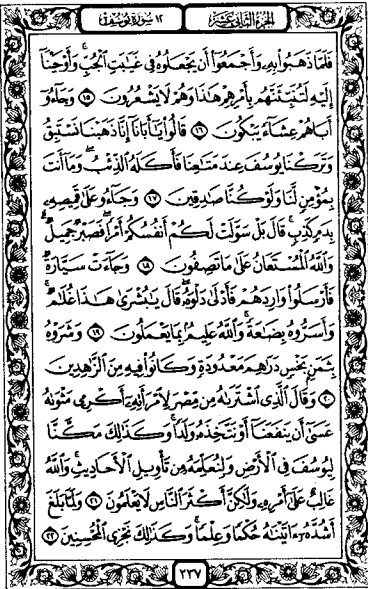 الجزء الثاني عشر
١٢ سورة يوسف
فَلَمَّا ذَهَبُوا۟ بِهِۦ وَأَجْمَعُوٓا۟ أَن يَجْعَلُوهُ فِى غَيَـٰبَتِ ٱلْجُبِّ ۚ وَأَوْحَيْنَآ
إِلَيْهِ لَتُنَبِّئَنَّهُم بِأَمْرِهِمْ هَـٰذَا وَهُمْ لَا يَشْعُرُونَ ١٥ وَجَآءُوٓ
أَبَاهُمْ عِشَآءً يَبْكُونَ ١٦ قَالُوا۟ يَـٰٓأَبَانَآ إِنَّا ذَهَبْنَا نَسْتَبِقُ
وَتَرَكْنَا يُوسُفَ عِندَ مَتَـٰعِنَا فَأَكَلَهُ ٱلذِّئْبُ ۖ وَمَآ أَنتَ
بِمُؤْمِنٍ لَّنَا وَلَوْ كُنَّا صَـٰدِقِينَ ١٧ وَجَآءُو عَلَىٰ قَمِيصِهِۦ
بِدَمٍ كَذِبٍ ۚ قَالَ بَلْ سَوَّلَتْ لَكُمْ أَنفُسُكُمْ أَمْرًا ۖ فَصَبْرٌ جَمِيلٌ ۖ
وَٱللَّهُ ٱلْمُسْتَعَانُ عَلَىٰ مَا تَصِفُونَ ١٨ وَجَآءَتْ سَيَّارَةٌ
فَأَرْسَلُوا۟ وَارِدَهُمْ فَأَدْلَىٰ دَلْوَهُۥ ۖ قَالَ يَـٰبُشْرَىٰ هَـٰذَا غُلَـٰمٌ ۚ
وَأَسَرُّوهُ بِضَـٰعَةً ۚ وَٱللَّهُ عَلِيمٌۢ بِمَا يَعْمَلُونَ ١٩ وَشَرَوْهُ
بِثَمَنٍۭ بَخْسٍ دَرَٰهِمَ مَعْدُودَةٍ وَكَانُوا۟ فِيهِ مِنَ ٱلزَّٰهِدِينَ
٢٠ وَقَالَ ٱلَّذِى ٱشْتَرَىٰهُ مِن مِّصْرَ لِٱمْرَأَتِهِۦٓ أَكْرِمِى مَثْوَىٰهُ
عَسَىٰٓ أَن يَنفَعَنَآ أَوْ نَتَّخِذَهُۥ وَلَدًا ۚ وَكَذَٰلِكَ مَكَّنَّا
لِيُوسُفَ فِى ٱلْأَرْضِ وَلِنُعَلِّمَهُۥ مِن تَأْوِيلِ ٱلْأَحَادِيثِ ۚ وَٱللَّهُ
غَالِبٌ عَلَىٰٓ أَمْرِهِۦ وَلَـٰكِنَّ أَكْثَرَ ٱلنَّاسِ لَا يَعْلَمُونَ ٢١ وَلَمَّا بَلَغَ
أَشُدَّهُۥٓ ءَاتَيْنَـٰهُ حُكْمًا وَعِلْمًا ۚ وَكَذَٰلِكَ نَجْزِى ٱلْمُحْسِنِينَ ٢٢
٢٣٧